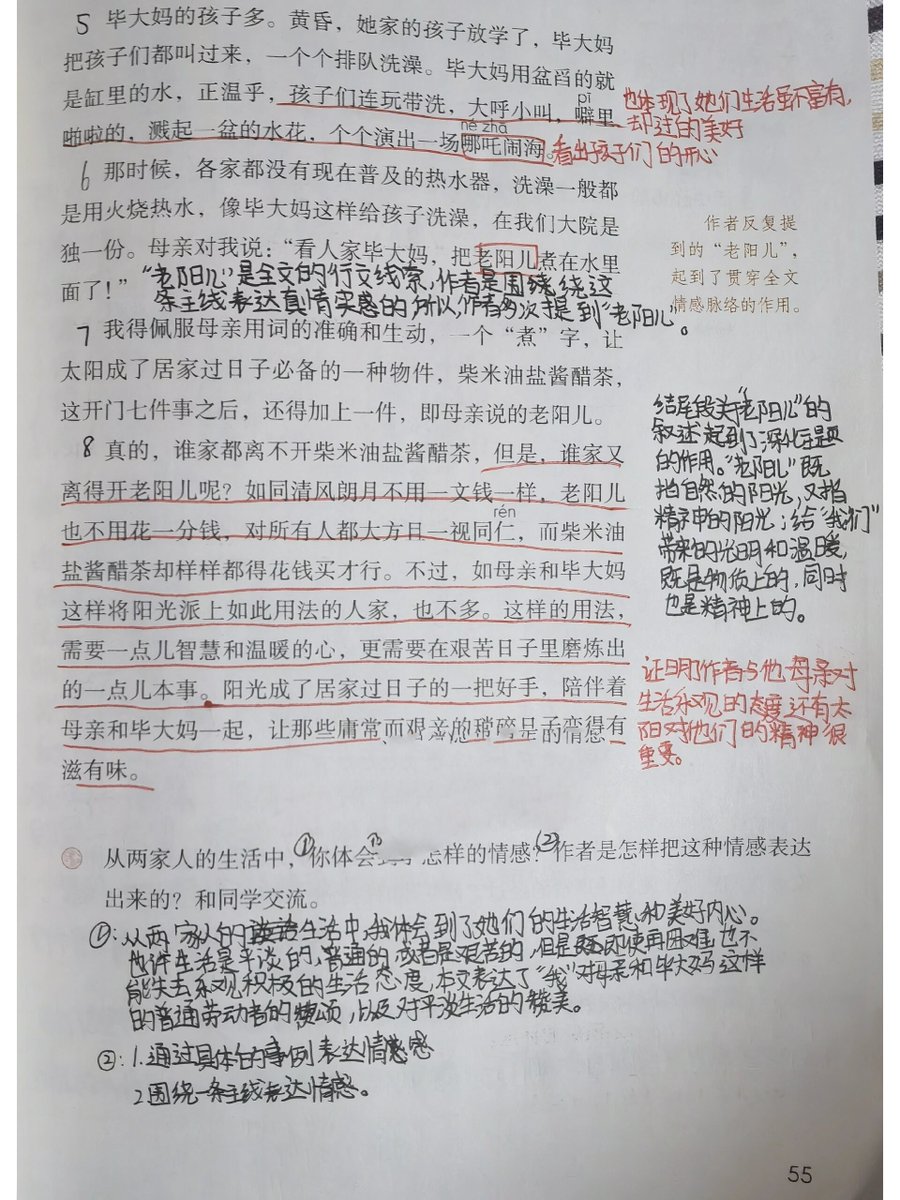 5 毕大妈的孩子多。黄昏，她家的孩子放学了，毕大妈
把孩子们都叫过来，一个个排队洗澡。毕大妈用盆舀的就
是缸里的水，正温乎，孩子们连玩带洗，大呼小叫，噼里
pī
啪啦的，溅起一盆的水花，个个演出一场哪吒闹海。
né zhā
也体现了她们生活虽不富有，
却过的美好
看出孩子们的开心
6 那时候，各家都没有现在普及的热水器，洗澡一般都
是用火烧热水，像毕大妈这样给孩子洗澡，在我们大院是
独一份。母亲对我说：“看人家毕大妈，把老阳儿煮在水里
面了！”
“老阳儿”是全文的行文线索，作者是围绕绕这
条主线表达真情实感的所以，作者多次提到“老阳儿”。
作者反复提
到的“老阳儿”，
起到了贯穿全文
情感脉络的作用。
7 我得佩服母亲用词的准确和生动，一个“煮”字，让
太阳成了居家过日子必备的一种物件，柴米油盐酱醋茶，
这开门七件事之后，还得加上一件，即母亲说的老阳儿。
8 真的，谁家都离不开柴米油盐酱醋茶，但是，谁家又
离得开老阳儿呢？如同清风朗月不用一文钱一样，老阳儿
rén
也不用花一分钱，对所有人都大方且一视同仁，而柴米油
盐酱醋茶却样样都得花钱买才行。不过，如母亲和毕大妈
这样将阳光派上如此用法的人家，也不多。这样的用法，
需要一点儿智慧和温暖的心，更需要在艰苦日子里磨炼出
的一点儿本事。阳光成了居家过日子的一把好手，陪伴着
母亲和毕大妈一起，让那些庸常而艰辛的琐碎日子变得有
滋有味。
结尾段关“老阳儿”的
叙述起到了深化主题
的作用。“老阳儿”既
指自然的阳光，又指
精神中的阳光；给“我们”
带来的光明和温暖，
既是物质上的，同时
也是精神上的。
证明了作者与他母亲对
生活乐观的态度，还有太
阳对他们的精神很
重要。
从两家人的生活中，①你体会到了怎样的情感？②作者是怎样把这种情感表达
出来的？和同学交流。
①：从两家人的生活中，我体会到了她们的生活智慧和美好内心。
也许生活是平淡的，普通的或者是艰苦的，但是即使再困难，也不
能失去乐观积极的生活态度，本文表达了“我”对母亲和毕大妈这样
的普通劳动者的赞颂，以及对平淡生活的赞美。
②：1.通过具体的事例表达情感
2围绕一条主线表达情感。
55